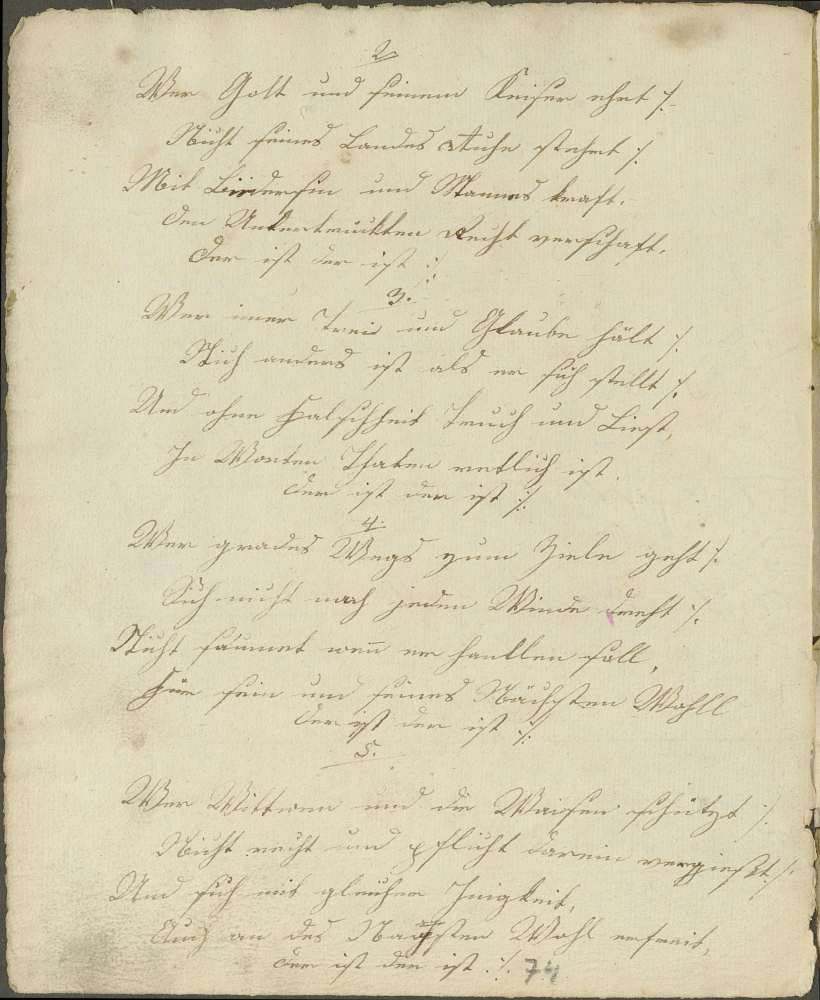 2.
Wer Gott und seinem Keiser ehrt ./.
Nicht seines Landes Ruhe stehret ./.
Mit Biedersin und Mannes kraft.
den Unterdruckten Recht verschaft.
der ist der ist ./.
3.
Wer imer Treu und Glaube hält ./.
Nich anders ist als er sich stellt ./.
Und ohne Falschheit Truch und List,
In Worten Thaten redlich ist.
der ist der ist ./.
4.
Wer grades Wegs zum Ziele geht ./.
Sich nicht nach jeden Winde dreht ./.
Nicht säumet wen er handlen soll,
Für sein und seines Nächsten Wohll
der ist der ist ./.
5.
Wer Wittwen und die Waisen schützt ./.
Nicht recht und pflicht darein vergießt ./.
Und sich mit gleicher Inigkeit,
Auch an des Nachsten Wohl erfreit,
der ist der ist ./.
74